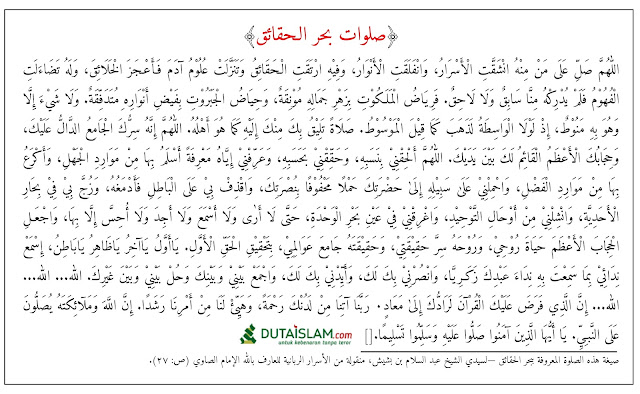 ﴿صلوات بحر الحقائق﴾
اللَّهُمَّ صَلِّ عَلَى مَنْ مِنْهُ انْشَقَّتِ الْأَسْرَارُ، وَانْفَلَقَتِ الْأَنْوَارُ، وَفِيْهِ ارْتَقَتِ الْحَقَائِقُ وَتَنَزَّلَتْ عُلُوْمُ آدَمَ فَأَعْجَزَ الْخَلَائِقَ، وَلَهُ تَضَاءَلَتِ
الْفُهُوْمُ فَلَمْ يُدْرِكْهُ مِنَّا سَابِقٌ وَلَا لَاحِقٌ. فَرِيَاضُ الْمَلَكُوْتِ بِزَهْرِ جَمَالِهِ مُوْنِقَةٌ، وَحِيَاضُ الْجَبَرُوْتِ بِفَيْضِ أَنْوَارِهِ مُتَدَفِّقَةٌ. وَلَا شَيْءَ إِلَّا
وَهُوَ بِهِ مَنُوْطٌ، إِذْ لَوْلَا الْوَاسِطَةُ لَذَهَبَ كَمَا قِيْلَ الْمَوْسُوْطُ. صَلَاةً تَلِيْقُ بِكَ مِنْكَ إِلَيْهِ كَمَا هُوَ أَهْلُهُ. اللَّهُمَّ إِنَّهُ سِرُّكَ الْجَامِعُ الدَّالُّ عَلَيْكَ،
وَحِجَابُكَ الْأَعْظَمُ الْقَائِمُ لَكَ بَيْنَ يَدَيْكَ. اللَّهُمَّ أَلْحِقْنِيْ بِنَسَبِهِ، وَحَقِّقْنِيْ بِحَسَبِهِ، وَعَرِّفْنِيْ إِيَّاهُ مَعْرِفَةً أَسْلَمُ بِهَا مِنْ مَوَارِدِ الْجَهْلِ، وَأَكْرَعُ
بِهَا مِنْ مَوَارِدِ الْفَضْلِ، وَاحْمِلْنِيْ عَلَى سَبِيْلِهِ إِلَى حَضْرَتِكَ حَمْلًا مَحْفُوْفًا بِنُصْرَتِكَ، وَاقْذِفْ بِيْ عَلَى الْبَاطِلِ فَأَدْمَغُهُ، وَزُجَّ بِيْ فِيْ بِحَارِ
الْأَحَدِيَّةِ، وَانْشُلْنِيْ مِنْ أَوْحَالِ التَّوْحِيْدِ، وَاغْرِقْنِيْ فِيْ عَيْنِ بَحْرِ الْوَحْدَةِ، حَتَّى لَا أَرَى وَلَا أَسْمَعَ وَلَا أَجِدَ وَلَا أُحِسَّ إِلَّا بِهَا، وَاجْعَلِ
الْحِجَابَ الْأَعْظَمَ حَيَاةَ رُوْحِيْ، وَرُوْحَهُ سِرَّ حَقِيْقَتِيْ، وَحَقِيْقَتَهُ جَامِعَ عَوَالِمِيْ، بِتَحْقِيْقِ الْحَقِّ الْأَوَّلِ. يَاأَوَّلُ يَاآخِرُ يَاظَاهِرُ يَابَاطِنُ، إِسْمَعْ
نِدَائِيْ بِمَا سَمِعْتَ بِهِ نِدَاءَ عَبْدِكَ زَكَرِيَّا، وَانْصُرْنِيْ بِكَ لَكَ، وَأَيِّدْنِيْ بِكَ لَكَ، وَاجْمَعْ بَيْنِيْ وَبَيْنَكَ وَحُلْ بَيْنِيْ وَبَيْنَ غَيْرِكَ. الله... الله...
الله... إِنَّ الَّذِي فَرَضَ عَلَيْكَ الْقُرْآنَ لَرَادُّكَ إِلَى مَعَادٍ. رَبَّنَا آتِنَا مِنْ لَدُنْكَ رَحْمَةً، وَهَيِّئْ لَنَا مِنْ أَمْرِنَا رَشَدًا. إِنَّ اللهَ وَمَلَائِكَتَهُ يُصَلُّوْنَ
عَلَى النَّبِيِّ. يَا أَيُّهَا الَّذِيْنَ آمَنُوْا صَلُّوْا عَلَيْهِ وَسَلِّمُوْا تَسْلِيْمًا.[]
DUTAISLAM.com
untuk kebenaran tanpa teror
صيغة هذه الصلوة المعروفة ببحر الحقائق –لسيدي الشيخ عبد السلام بن بشيش، منقولة من الأسرار الربانية للعارف بالله الإمام الصاوي (ص: ٢٧).